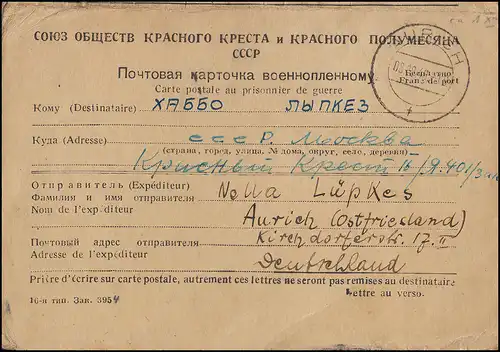 СОЮЗ ОБЩЕСТВ КРАСНОГО КРЕСТА и КРАСНОГО ПОЛУМЕСЯЦА
СССР
Почтовая карточка военнопленному
Carte postale au prisonnier de guerre
Бесплатно
Franc de port
AURICH
Кому (Destinataire) ХАББО ЛЫПКЕЗ
Куда (Adresse) СССР. Москва
(страна, город, улица, № дома, округ, село, деревня)
Красный Крест
Отправитель (Expéditeur)
Фамилия и имя отправителя Nella Lüpkes
Nom de l'expéditeur Aurich (Ostfriesland)
Почтовый адрес отправителя Kirchdorferstr. 17. II
Adresse de l'expéditeur Deutschland
Prière d'écrire sur carte postale, autrement ces lettres ne seront pas remises au destinataire
Lettre au verso.
16-я тип. Зак. 3954